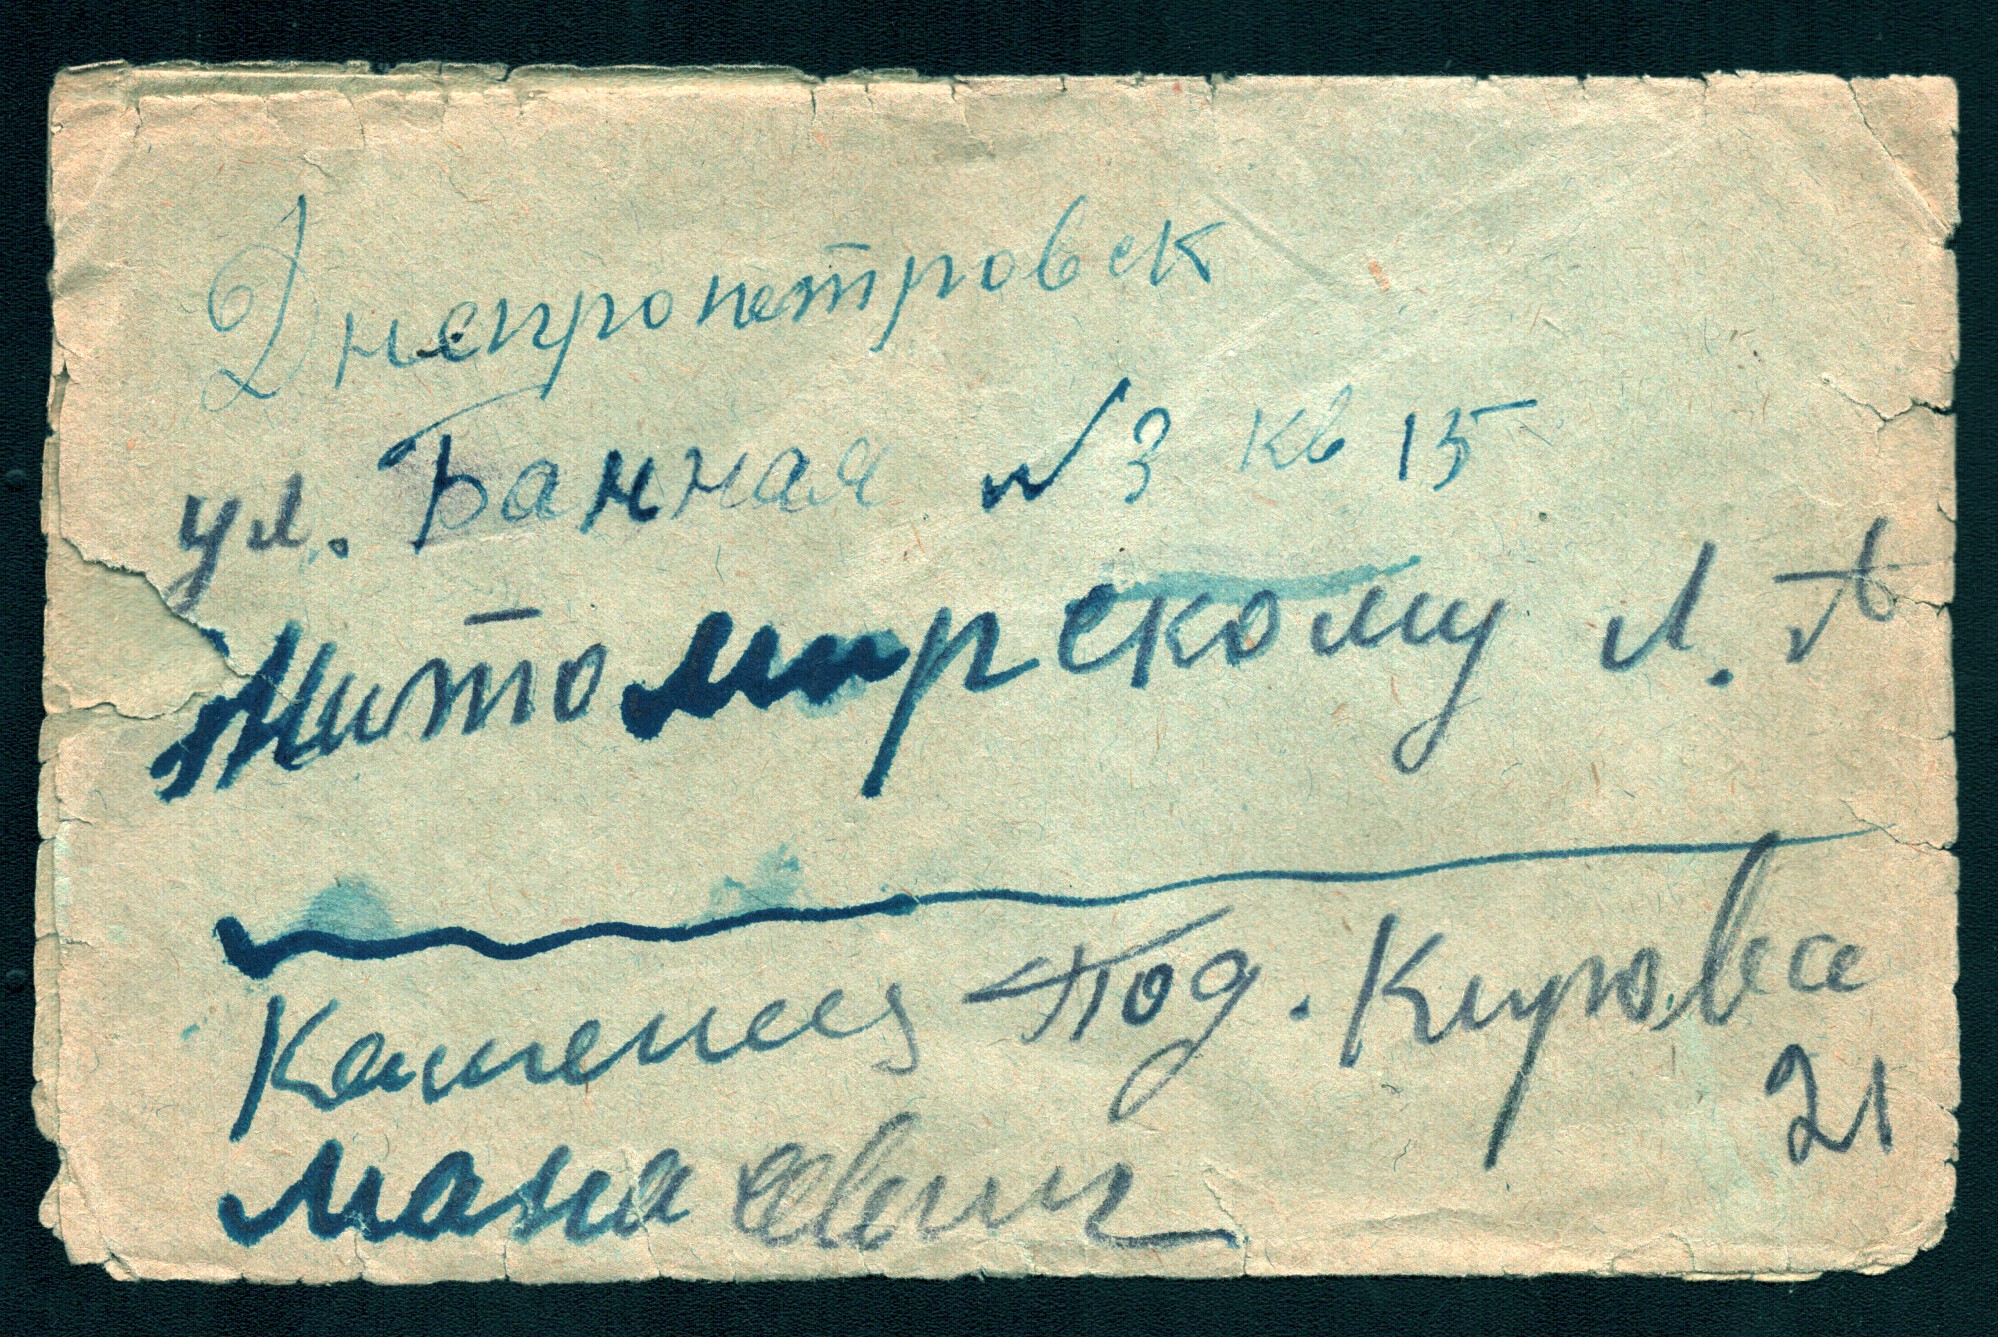 Днепропетровск
ул. Банная № 3 кв 15
Житомирскому Л. А
Каменец Под. Кирова
21
Манасевич